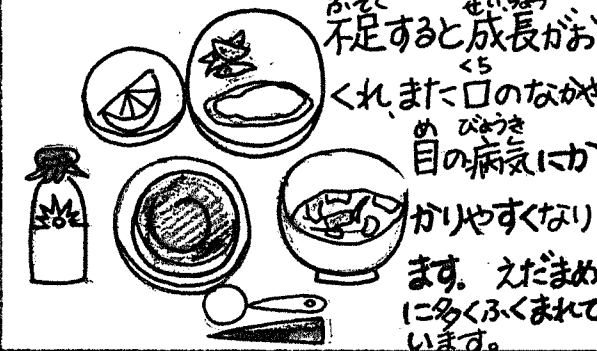 不足すると成長がお
くれ、また口のなかや
目の病気にか
かりやすくなり
ます。 えだまめ
に多くふくまれて
います。